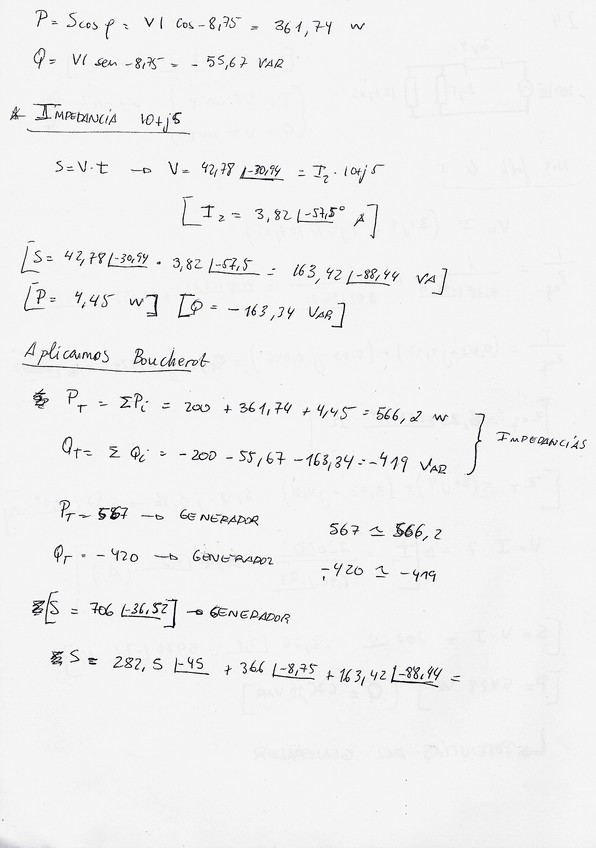 P = S cos φ = VI cos -8,75 = 361,74 W
Q = VI sen -8,75 = -55,67 VAR
* IMPEDANCIA 10+j5
S=V·I → V= 42,78 |-30,94 = I2 · 10+j5
[I2 = 3,82 |-57,5° A]
[S= 42,78 |-30,94 · 3,82 |-57,5 = 163,42 |-88,44 VA]
[P= 4,45 W] [Q= -163,34 VAR]
Aplicamos Boucherot
PT = ΣPi = 200 + 361,74 + 4,45 = 566,2 W
QT = Σ Qi = -200 -55,67 -163,34 = -419 VAR
} IMPEDANCIAS
PT = 567 → GENERADOR 567 ≃ 566,2
QT = -420 → GENERADOR -420 ≃ -419
[S = 706 |-36,52] → GENERADOR
S = 282,5 |-45 + 366 |-8,75 + 163,42 |-88,44 =